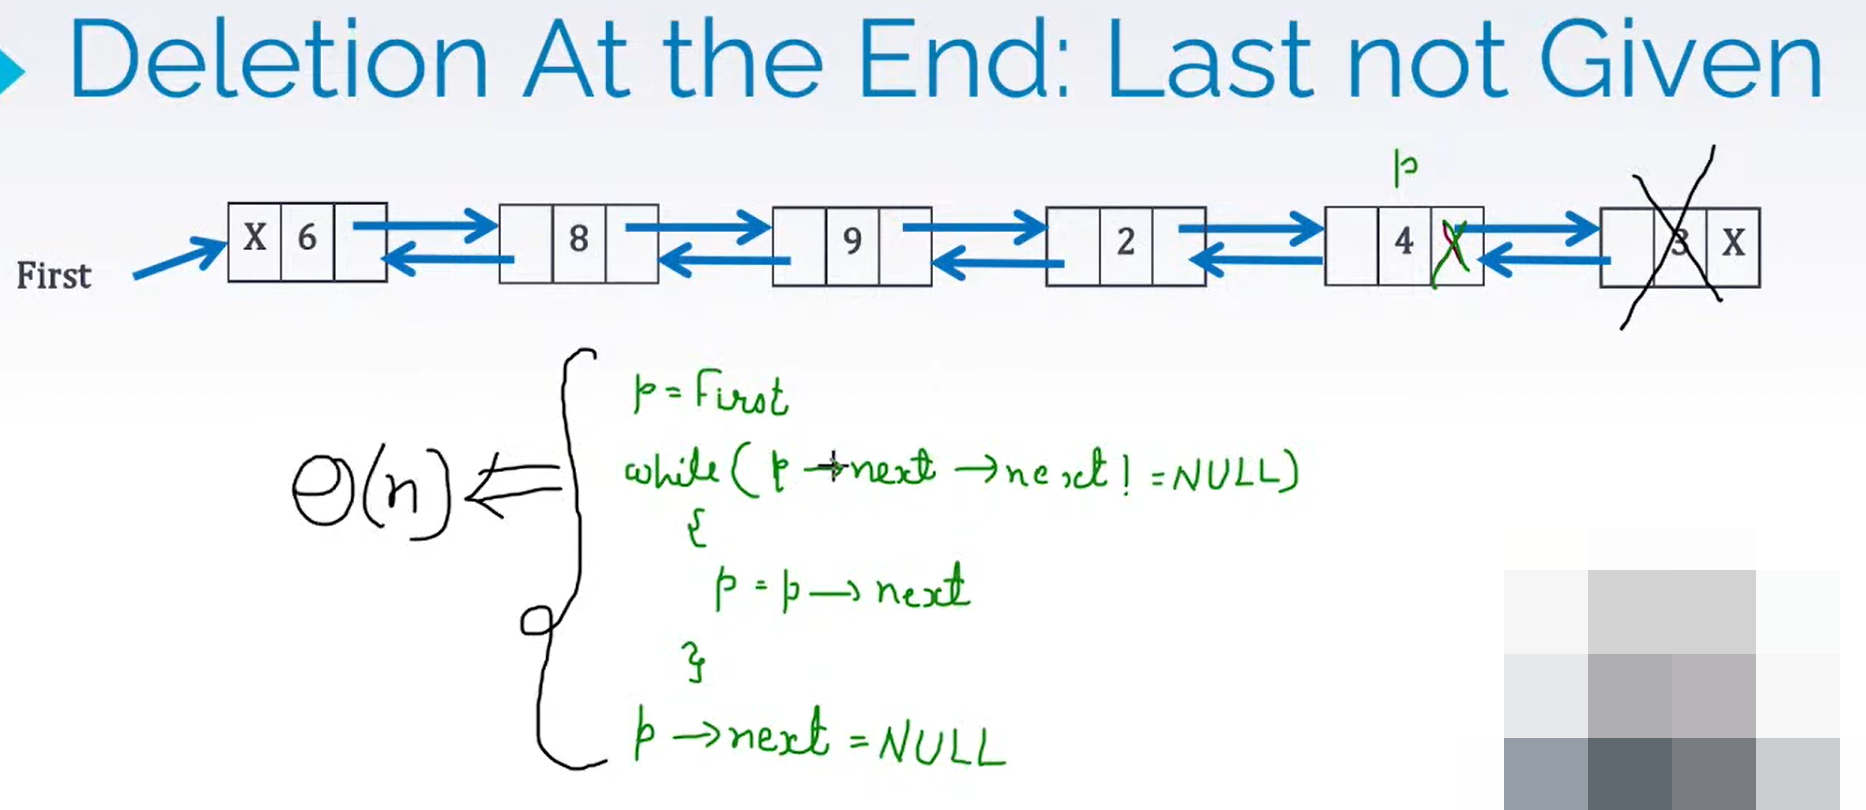 Deletion At the End: Last not Given
p
X 6 8 9 2 4 X 3 X
First
p = First
while ( p → next → next ! = NULL )
{
Θ(n) ⇐
p = p → next
}
p → next = NULL